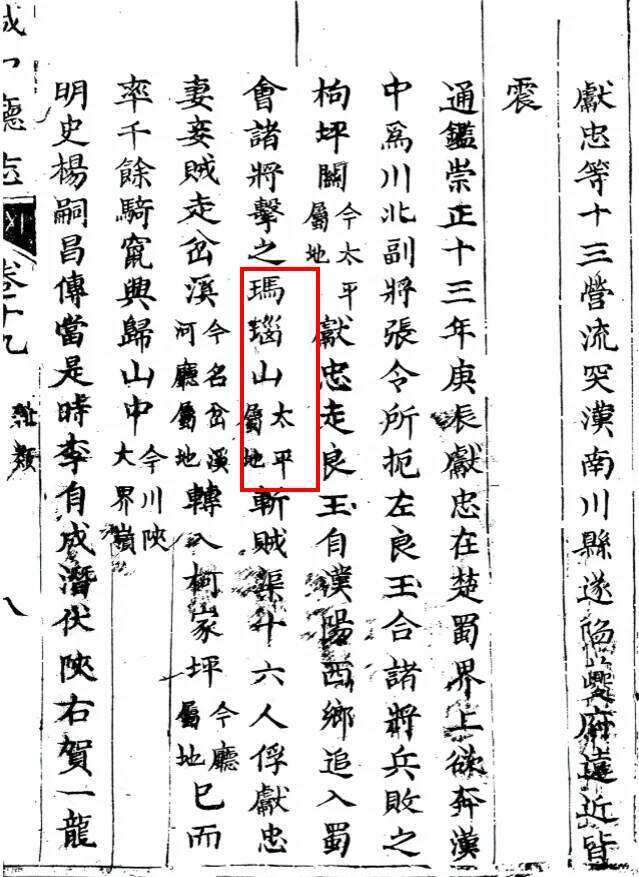 獻忠等十三營流突漢南川縣遂陷夔府遠近皆
震
通鑑崇正十三年庚辰獻忠在楚蜀界上欲奔漢
中爲川北副將張令所扼左良玉合諸將兵敗之
枸坪關今太平屬地獻忠走良玉自漢陽西鄉追入蜀
會諸將擊之瑪瑙山太平屬地斬賊渠十六人俘獻忠
妻妾賊走岔溪今名岔溪河廳屬地轉入柯家坪今廳屬地已而
率千餘騎竄興歸山中今川陝大界嶺
明史楊嗣昌傳當是時李自成潛伏陝右賀一龍
廳志 卷十九 雜類 八